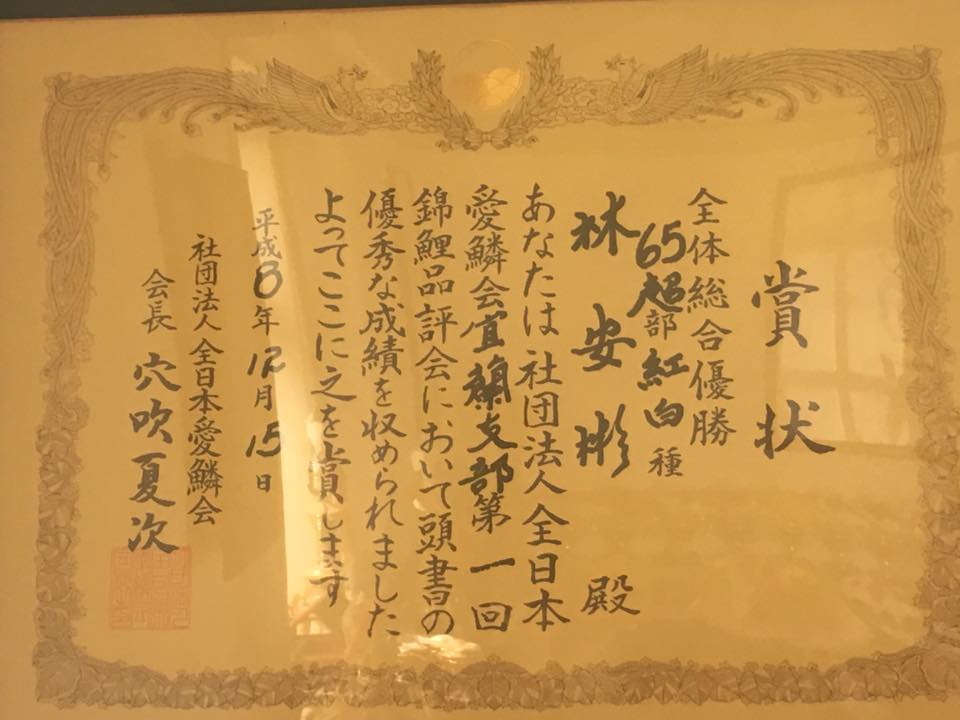 賞状
全体総合優勝
65超部紅白種
林安彬殿
あなたは社団法人全日本
愛鱗会宜蘭支部第一回
錦鯉品評会において頭書の
優秀な成績を収められました
よってここに之を賞します
平成8年12月15日
社団法人全日本愛鱗会
会長穴吹夏次